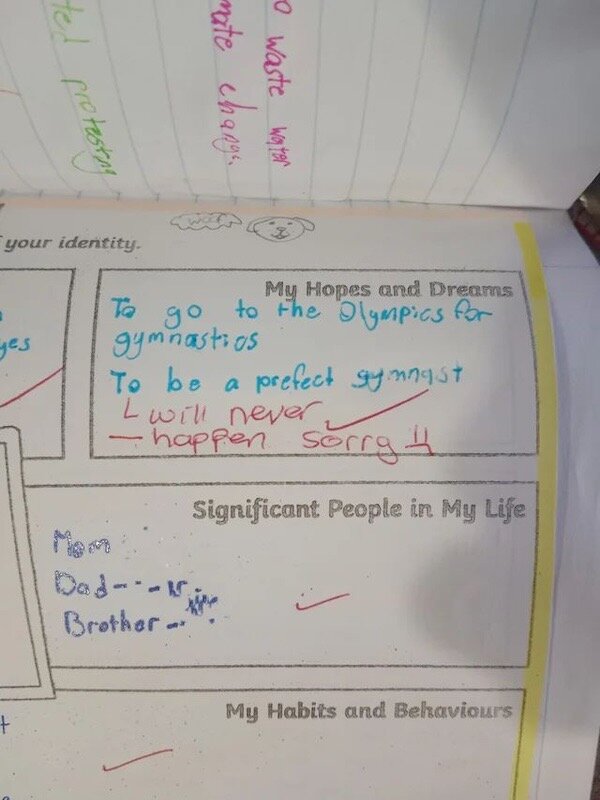 o waste water
mate change.
ted protestng
woof
your identity.
yes
My Hopes and Dreams
To go to the Olympics for
gymnastics
To be a prefect gymnast
will never
happen sorry
Significant People in My Life
Mom
Dad
Brother
My Habits and Behaviours